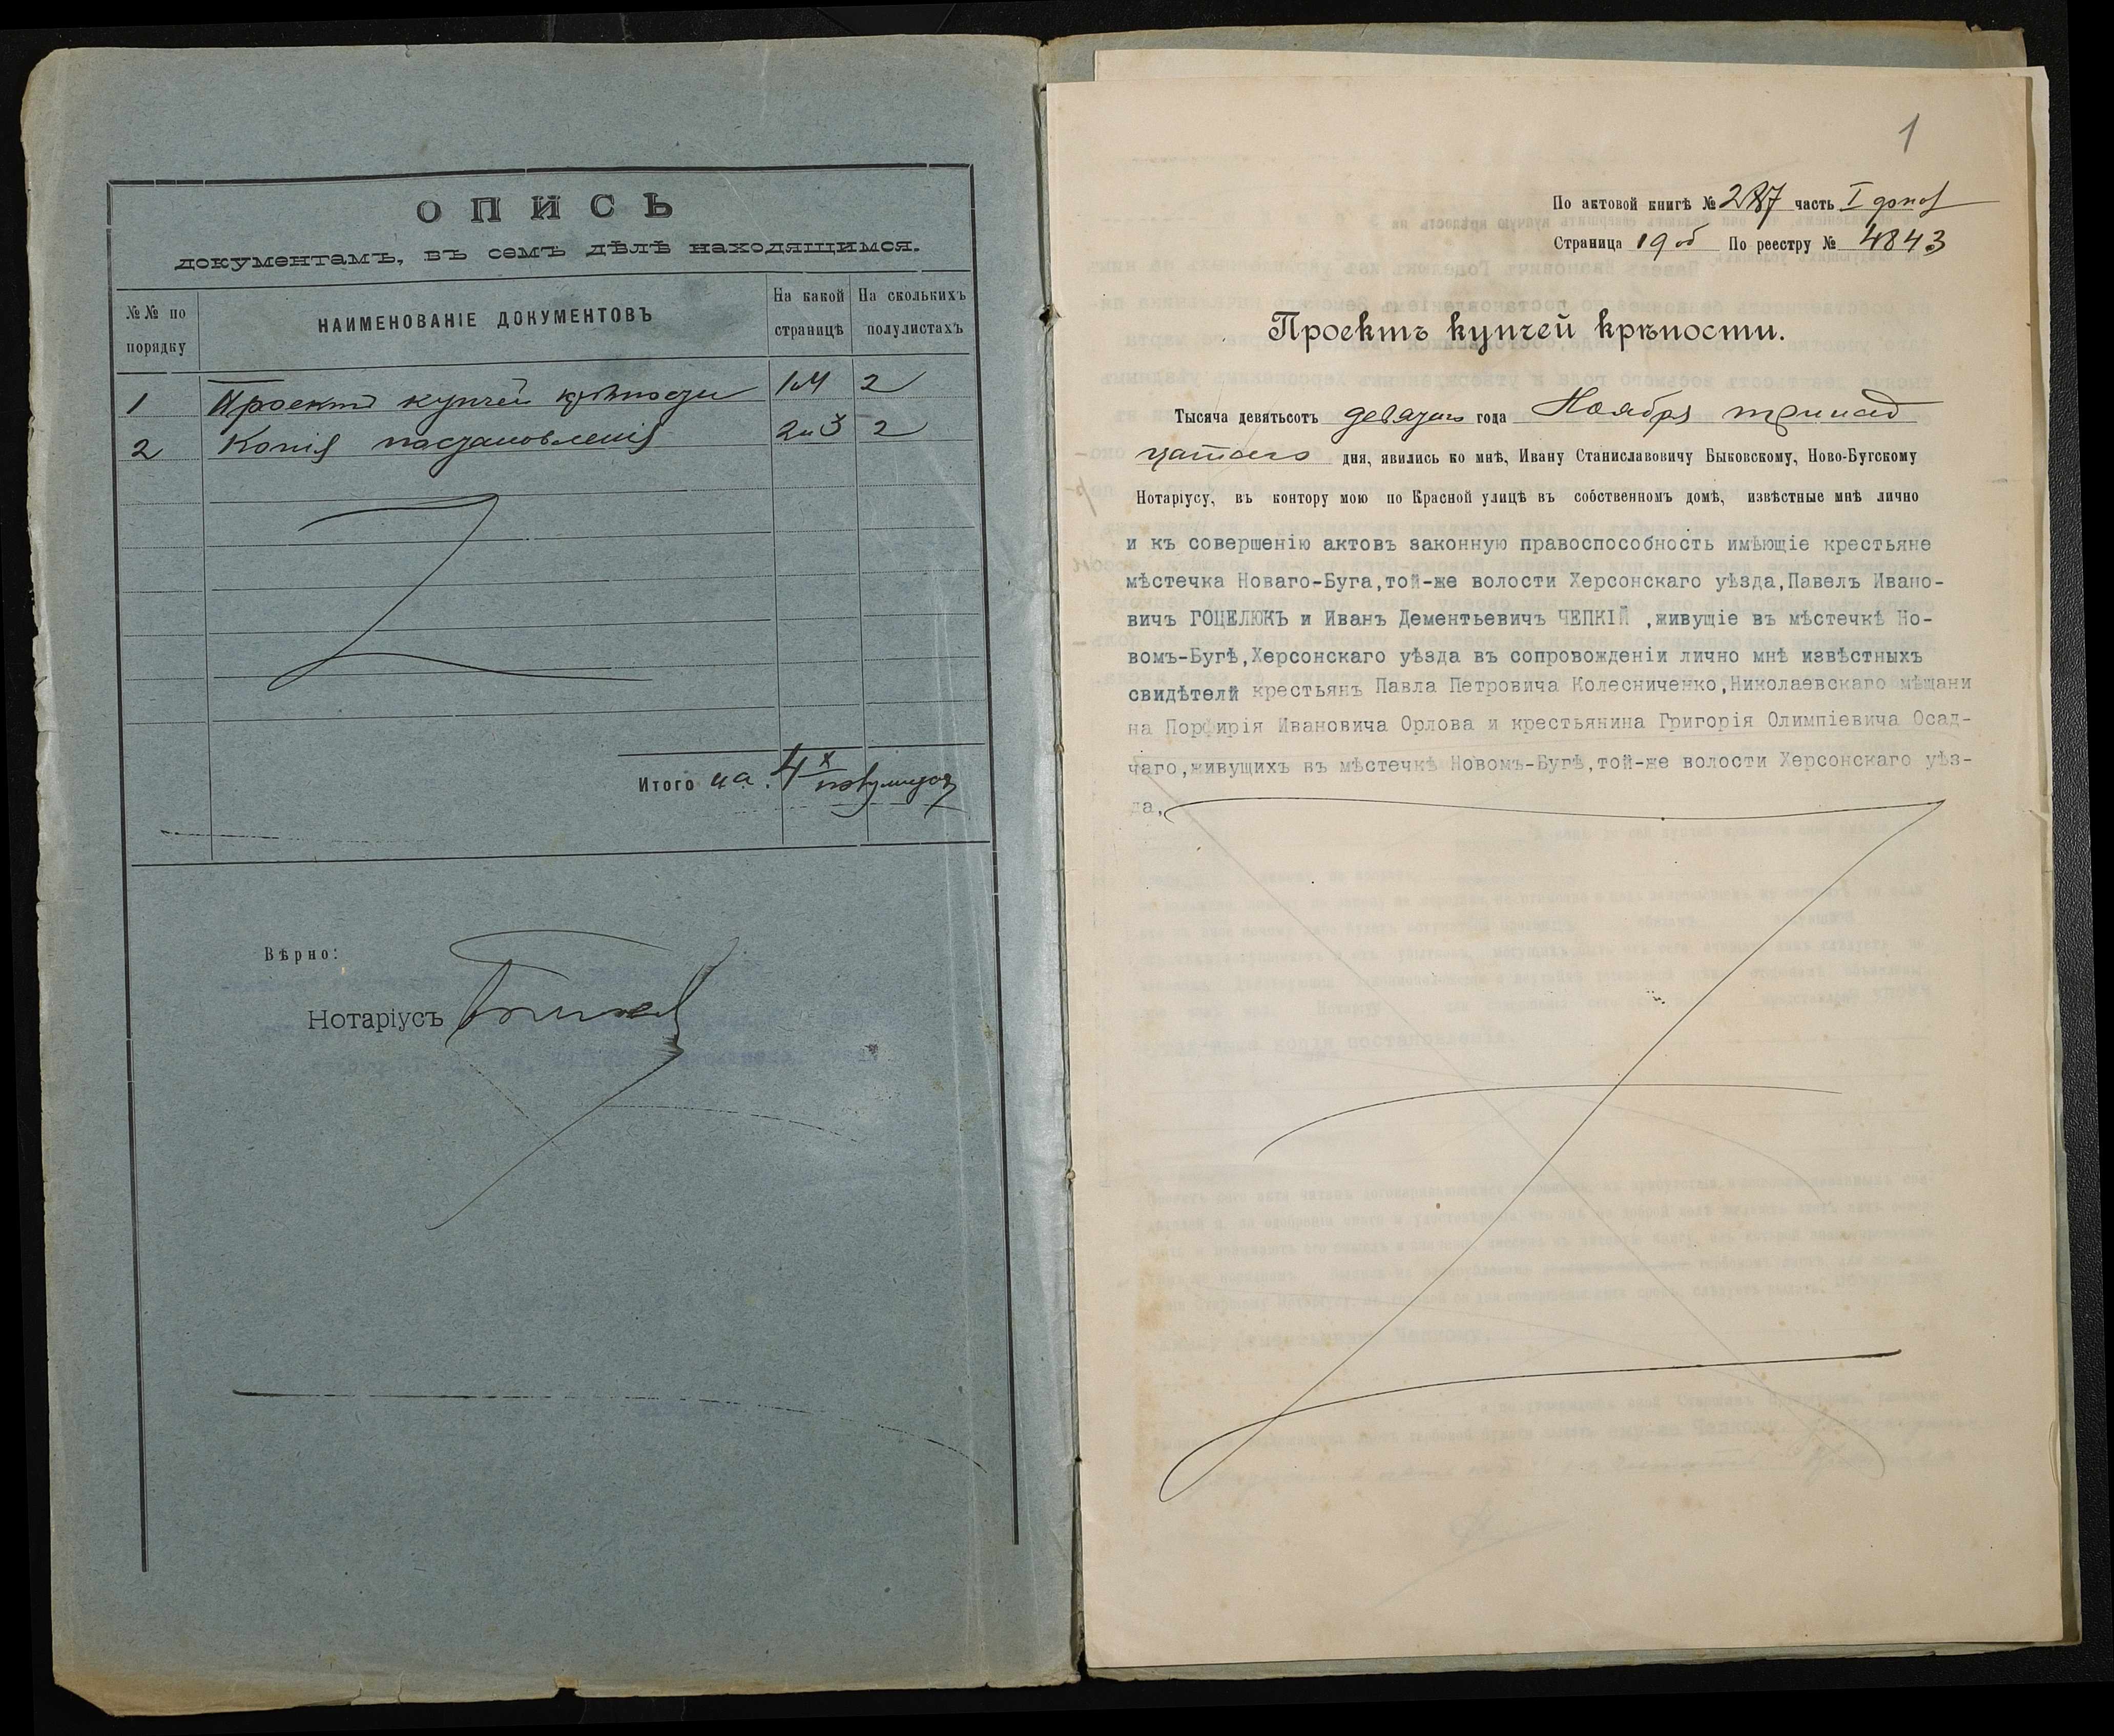 ОПИСЬ
документамъ, въ семъ дѣлѣ находящимся.
№№ по порядку
НАИМЕНОВАНІЕ ДОКУМЕНТОВЪ
На какой страницѣ
На сколькихъ полулистахъ
1 Проектъ купчей крѣпости 1и4 2
2 Копія постановленія 2и3 2
Итого на 4х полулистах
Вѣрно:
Нотаріусъ
1
По актовой книгѣ № 287 часть I
Страница 19 об По реестру № 4843
Проектъ купчей крѣпости.
Тысяча девятьсотъ девятаго года Ноября тринад
цатаго дня, явились ко мнѣ, Ивану Станиславовичу Быковскому, Ново-Бугскому
Нотаріусу, въ контору мою по Красной улицѣ въ собственномъ домѣ, извѣстные мнѣ лично
и къ совершенію актовъ законную правоспособность имѣющіе крестьяне
мѣстечка Новаго-Буга,той-же волости Херсонскаго уѣзда,Павелъ Ивано-
вичъ ГОЦЕЛЮКЪ и Иванъ Дементьевичъ ЧЕПКІЙ ,живущіе въ мѣстечкѣ Но-
вомъ-Бугѣ,Херсонскаго уѣзда въ сопровожденіи лично мнѣ извѣстныхъ
свидѣтелй крестьянъ Павла Петровича Колесниченко,Николаевскаго мѣщани
на Порфирія Ивановича Орлова и крестьянина Григорія Олимпіевича Осад-
чаго,живущихъ въ мѣстечкѣ Новомъ-Бугѣ,той-же волости Херсонскаго уѣз-
да,